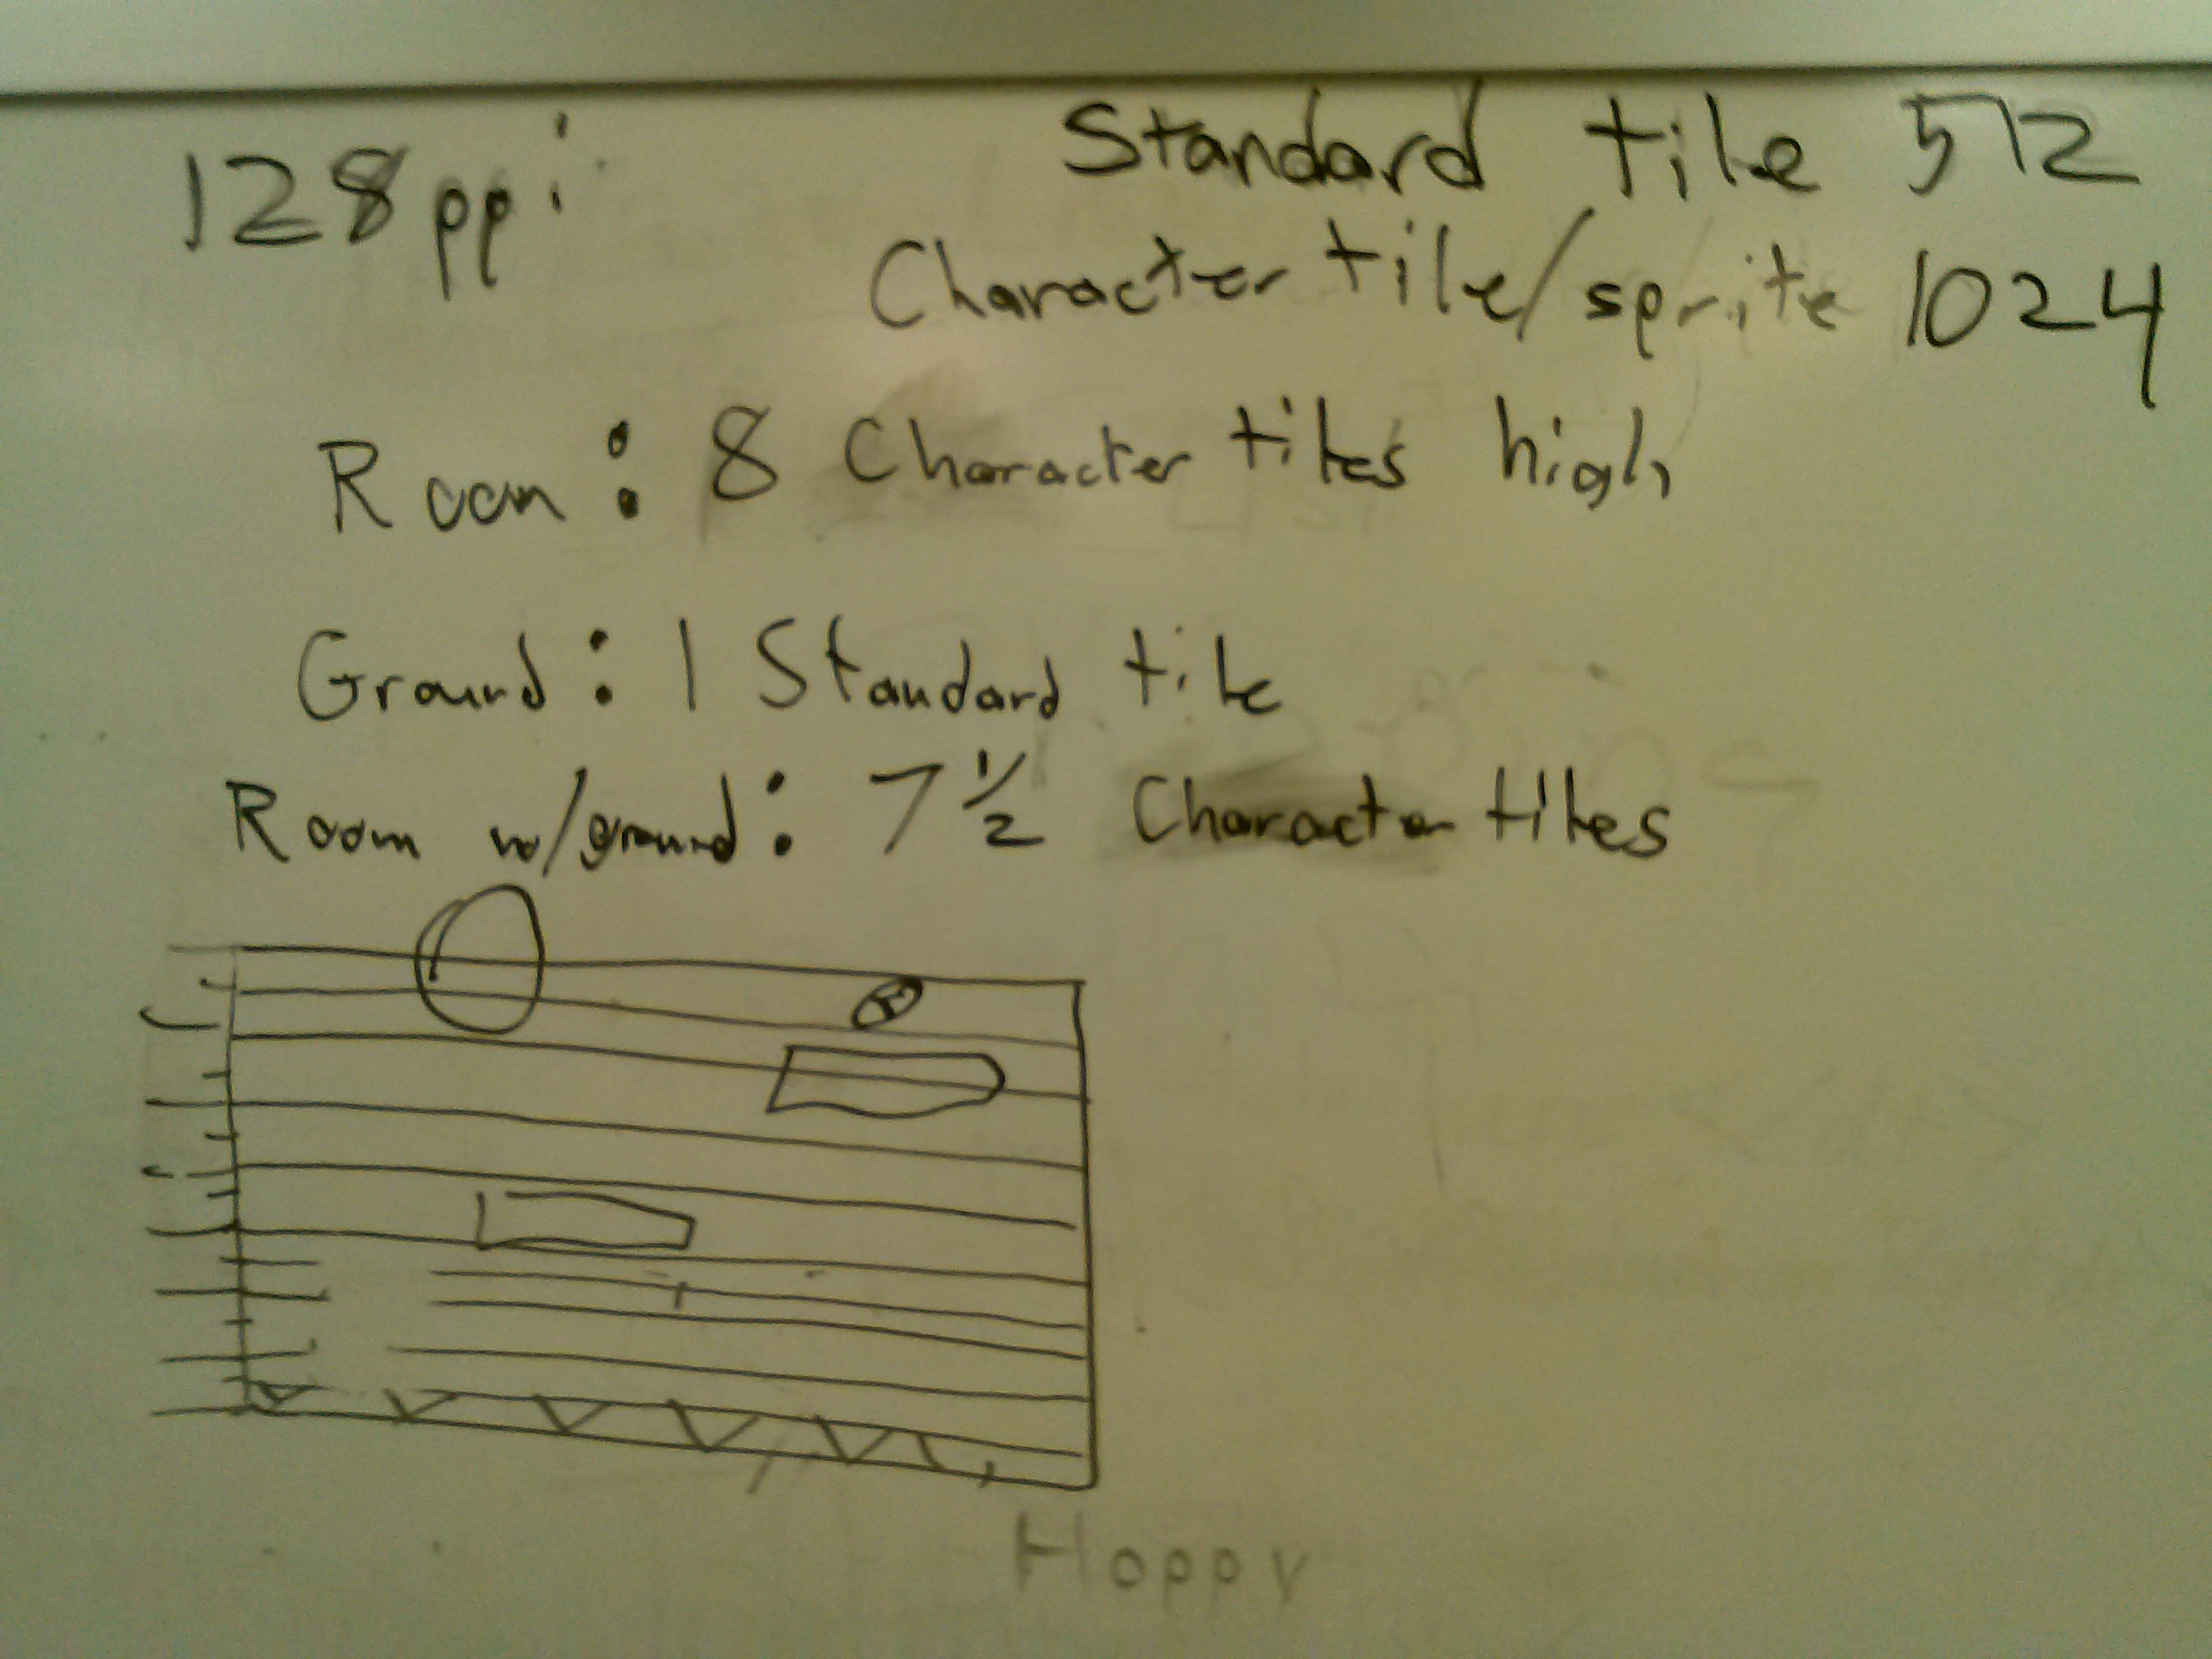 128ppi
Standard tile 512
Character tile/sprite 1024
Room: 8 Character tiles high
Ground: 1 Standard tile
Room w/ground: 7 1/2 Character tiles